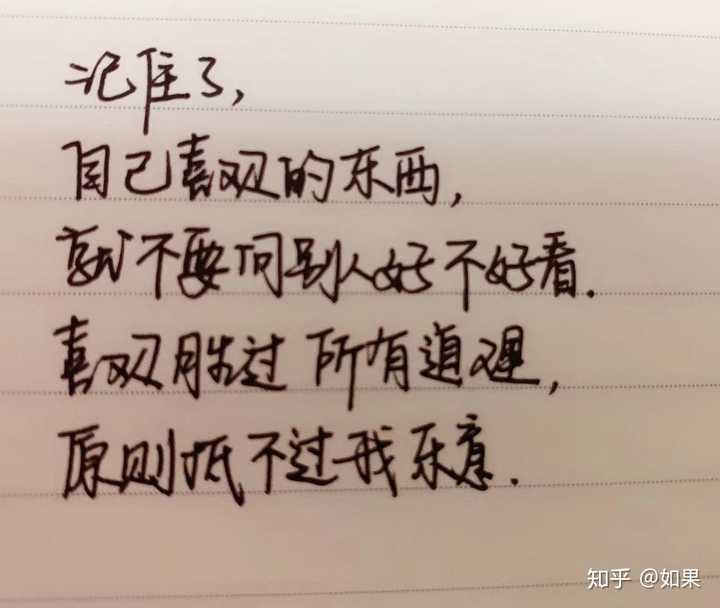 记住了,
自己喜欢的东西,
就不要问别人好不好看.
喜欢胜过所有道理,
原则抵不过我乐意.
知乎 @如果